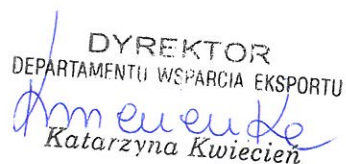 DYREKTOR
DEPARTAMENTU WSPARCIA EKSPORTU
Katarzyna Kwiecień